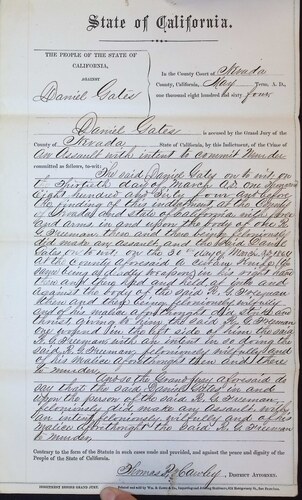 State of California.
THE PEOPLE OF THE STATE OF
CALIFORNIA,
AGAINST
Daniel Gates
In the County Court of Nevada
County, California, May Term, A. D.,
one thousand eight hundred and sixty four
Daniel Gates
is accused by the Grand Jury of the
County of Nevada State of California, by this Indictment, of the Crime of
An Assault with intent to commit Murder
committed as follows, to-wit:
The said Daniel Gates on to wit on
the Thirtieth day of March AD one thousand
Eight hundred and Sixty four and before
the finding of this Indictment at the County
of Nevada and State of California with force
and arms in and upon the body of one R.
G. Freeman then and there being feloniously
did make an assault and the said Daniel
Gates on to wit on the day of March AD 1864
at the County aforesaid with a certain Knife the
same being a deadly weapon in his right hand
then and there had and held at into and
against the body of the said R. G. Freeman
then and there being feloniously wilfully
and of his malice aforethought did strike and
thrust giving to him the said R. G. Freeman
one wound in the left side of him the said
R. G. Freeman with an intent in so doing the
said R. G. Freeman feloniously wilfully and
of his malice aforethought then and there
to murder.
And so the Grand Jury aforesaid do
say that the said Daniel Gates in and
upon the person of the said R. G. Freeman
feloniously did make an assault with
an intent feloniously wilfully and of his
malice aforethought the said R. G. Freeman
to murder
Contrary to the form of the Statute in such cases made and provided, and against the peace and dignity of the
People of the State of California.
Thomas P. Hawley, DISTRICT ATTORNEY.